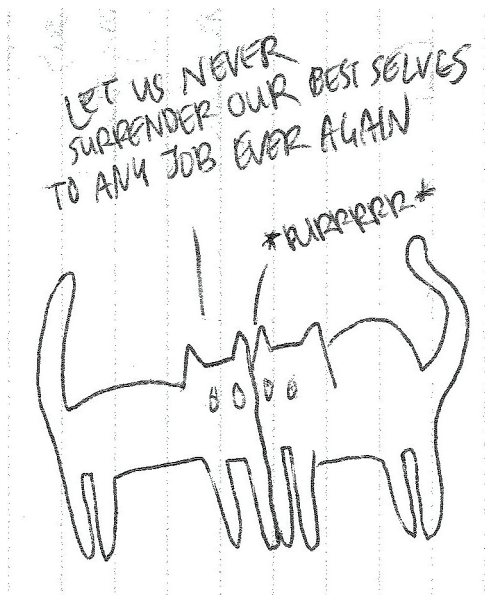 LET US NEVER
SURRENDER OUR BEST SELVES
TO ANY JOB EVER AGAIN
*PURRRRR*